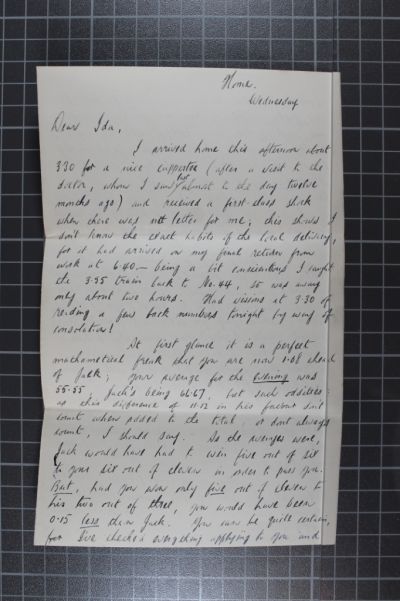 Home.
Wednesday
Dear Ida,
I arrived home this afternoon about
3.30 for a nice (after a visit to the
doctor, whom I saw last almost to the day twelve
months ago) and received a first-class shock
when there was no letter for me; this shows I
don't know the exact habits of the local delivery,
for it had arrived on my final return from
work at 6.40 — being a bit I caught
the 3.55 train back to No. 44, so was away
only about two hours. Had visions at 3.30 of
reading a few back numbers tonight by way of
consolation!
At first glance it is a perfect
mathematical freak that you are now 1.08 ahead
of Jack; your average for the evening was
55.55, Jack's being 66.67, but such oddities
as this difference of 11.12 in his favour don't
count when added to the total, or don't always
count, I should say. As the averages were,
Jack would have had to win five out of six
to your six out of eleven in order to pass you.
But, had you won only five out of eleven to
his two out of three, you would have been
0.15 less than Jack. You can be quite certain,
for I've checked everything applying to you and